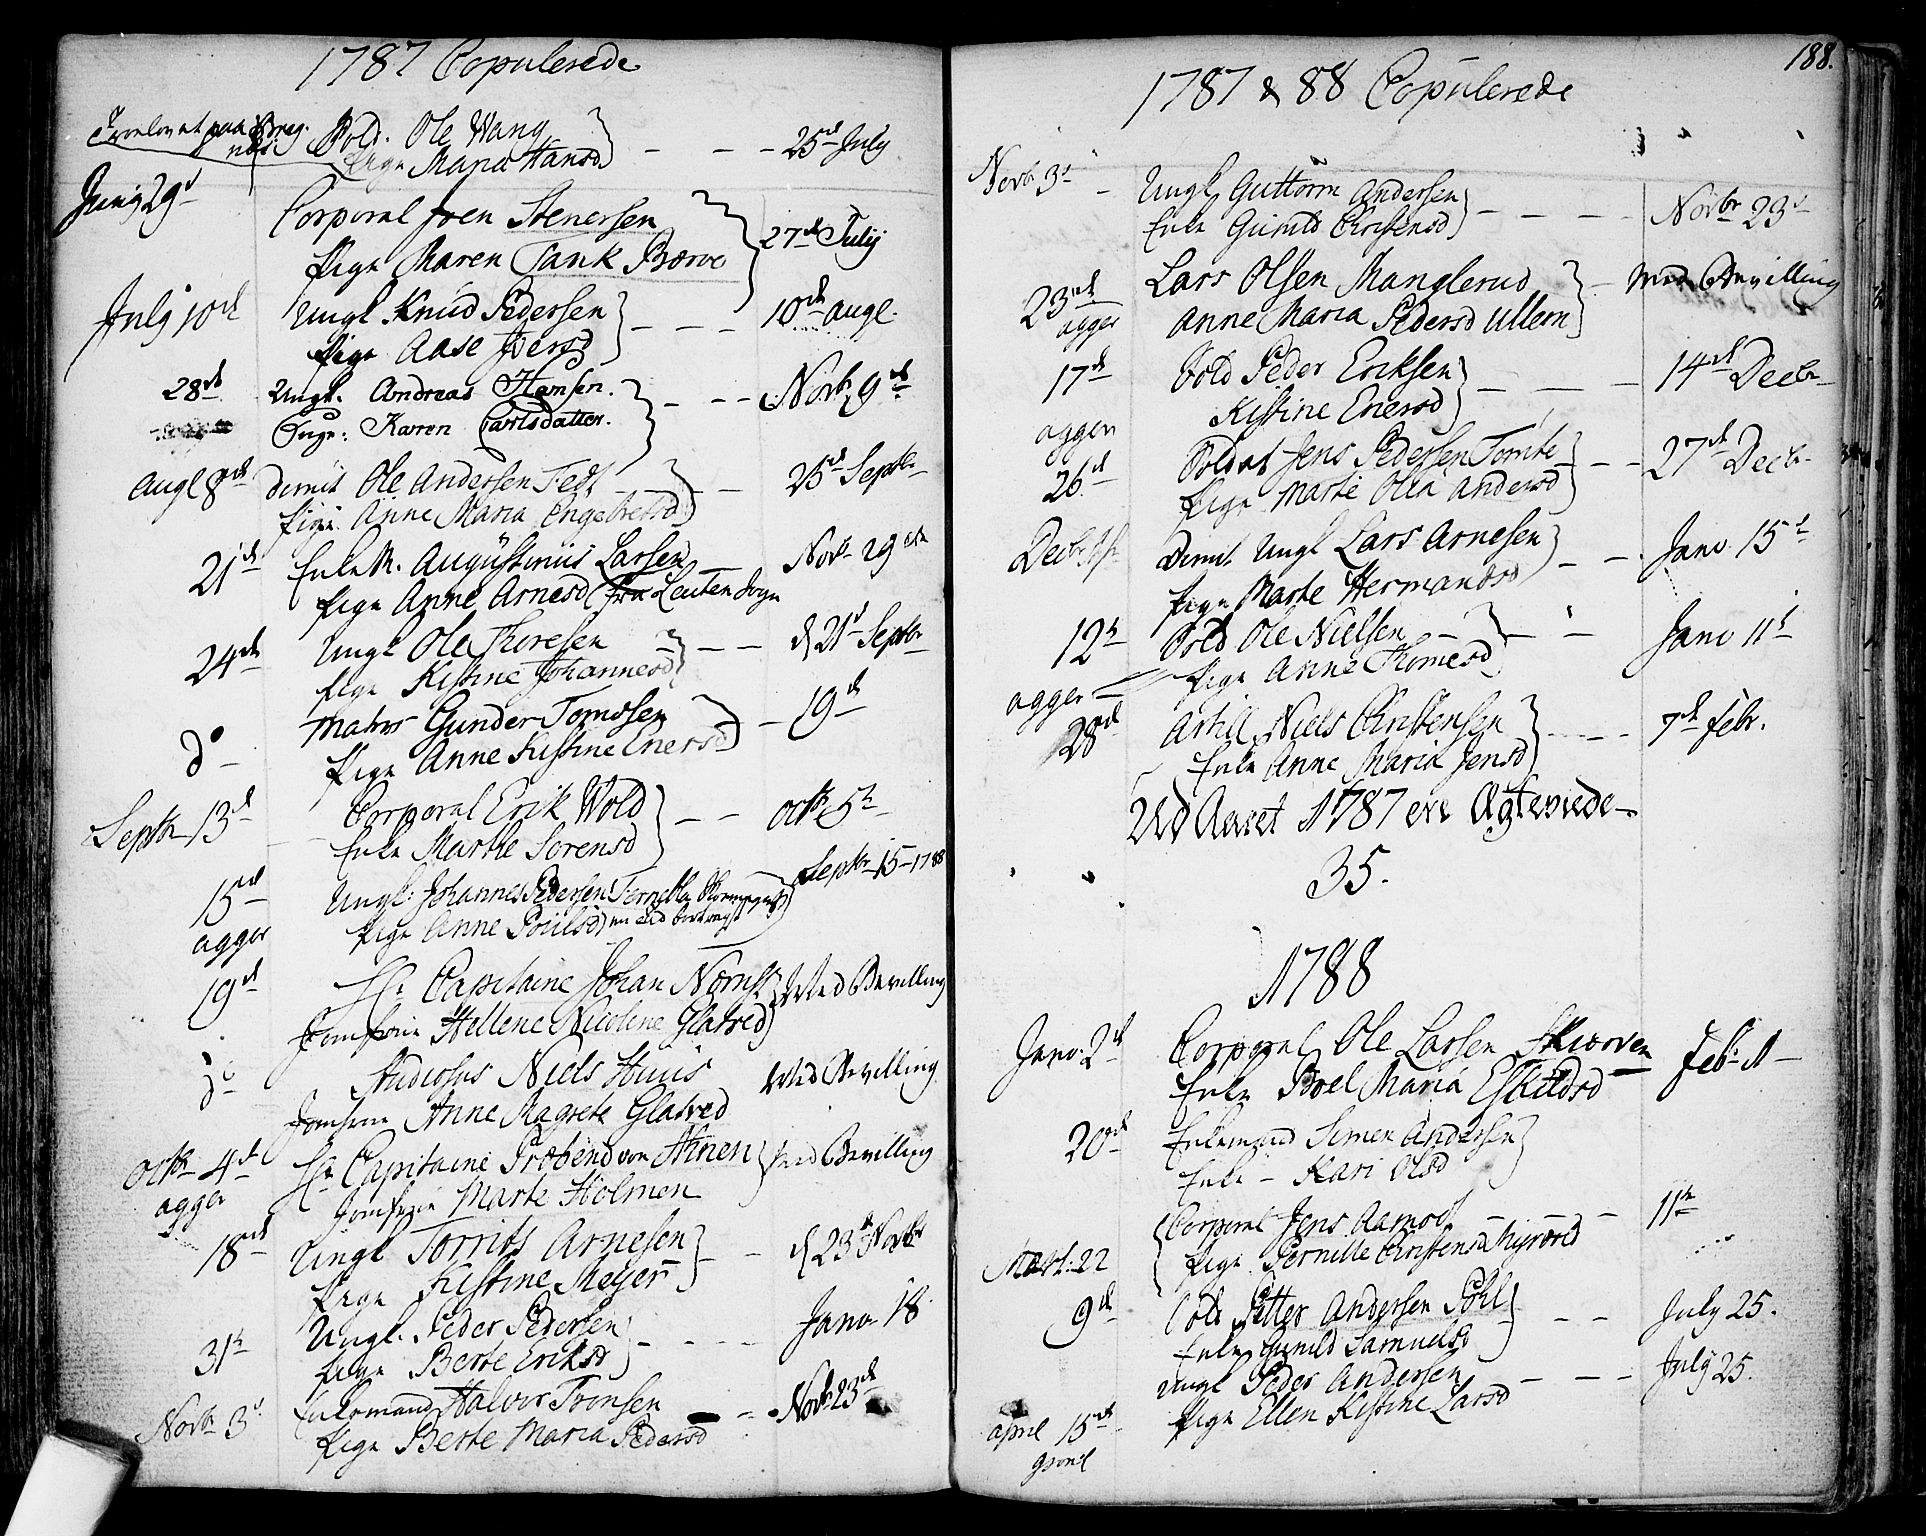 1787 Copulerede
Sold. Ole Wang
Pige Maria Hansd - - - 25de July
Junij 29d Corporal Joen Stenersen
Pige Maren Tank Bærve 27de Julij
July 10de Ungk Knud Pedersen
Pige Aase Joersd - - - 10de augl.
28de Ungk. Andreas Hansen.
Pige: Karen Carlsdatter. - - - Novbr 9de
Augl 8de dimit Ole Andersen Fedt
Pige Anne Maria Engebretsd - - 23de Septbr
21de EnkeM. Augustinus Larsen
Pige Anne Arnesd fra Leuten Sogn Novb 29de
24de Ungk Ole Thoresen
Pige Kistine Johannesd - - d 21de Septbr
do Matros Gunder Tomesen
Pige Anne Kistine Enersd - 19de
Septbr 13de Corporal Erik Wold
Enke Marthe Sorensd - - octbr 5te
15de Ungk: Johannes Pedersen
agger Pige Anne Poulsd Septbr 15 - 1788
19de Hr Capitaine Johan
Jomfrue Hellene Nicoline Glatved Med Bevilling
do Studiosus Niels Huus
Jomfrue Anne Magrete Glatved Med Bevilling
octbr 4de Hr Capitaine Præbend von Ahnen
agger Jomfrue Marte Holmen Med Bevilling
18de Ungk Torrits Arnesen
Pige Kistine Meyer - - d 23de Novbr
31te Ungk. Peder Pedersen
Pige Berte Eriksd - - - Janv 18
Novbr 3d Enkemand Halvor Tronsen
Pige Berte Maria Pedersd - - Novbr 23de
188.
1787 & 88 Copulerede
Novbr 3d - Ungk Guttorm Andersen
Enke Gunild Christensd - - - - Novbr 23d
23de Lars Olsen Manglerud
agger Anne Maria Pedersd Ullern - Med Bevilling
17de Sold Peder Eriksen
agger Kistine Enersd - - - 14de Decbr
26de Soldat Jens Pedersen Tomte
Pige Marte Olea Andersd - - 27de Decbr
Decbr Dimit Ungk Lars Arnesen
Pige Marte Hermandsd - - Janv 15de
12te Sold Ole Nielsen
agger Pige Anne Thomesd - - Janv 11te
28de Artill. Niels Christensen
Enke Anne Maria Jensd - - - 7de febr.
Ud Aaret 1787 ere Ægteviede
35.
1788
Janv. 2de Corporal Ole Larsen Skiørven
Enke Boel Maria Eskildsd Feb. 11
20de Enkemand Simen Andersen
Enke - Kari Olsd
Corporal Jens Aamodt - - - 11te
Mart: 22 Pige Pernille Christensd
9de Sold Petter Andersen Pøhl
Enke Gunild Samuelsd - - July 25.
Ungk Peder Andersen - - - July 25.
april 15de Pige Ellen Kistine Larsd